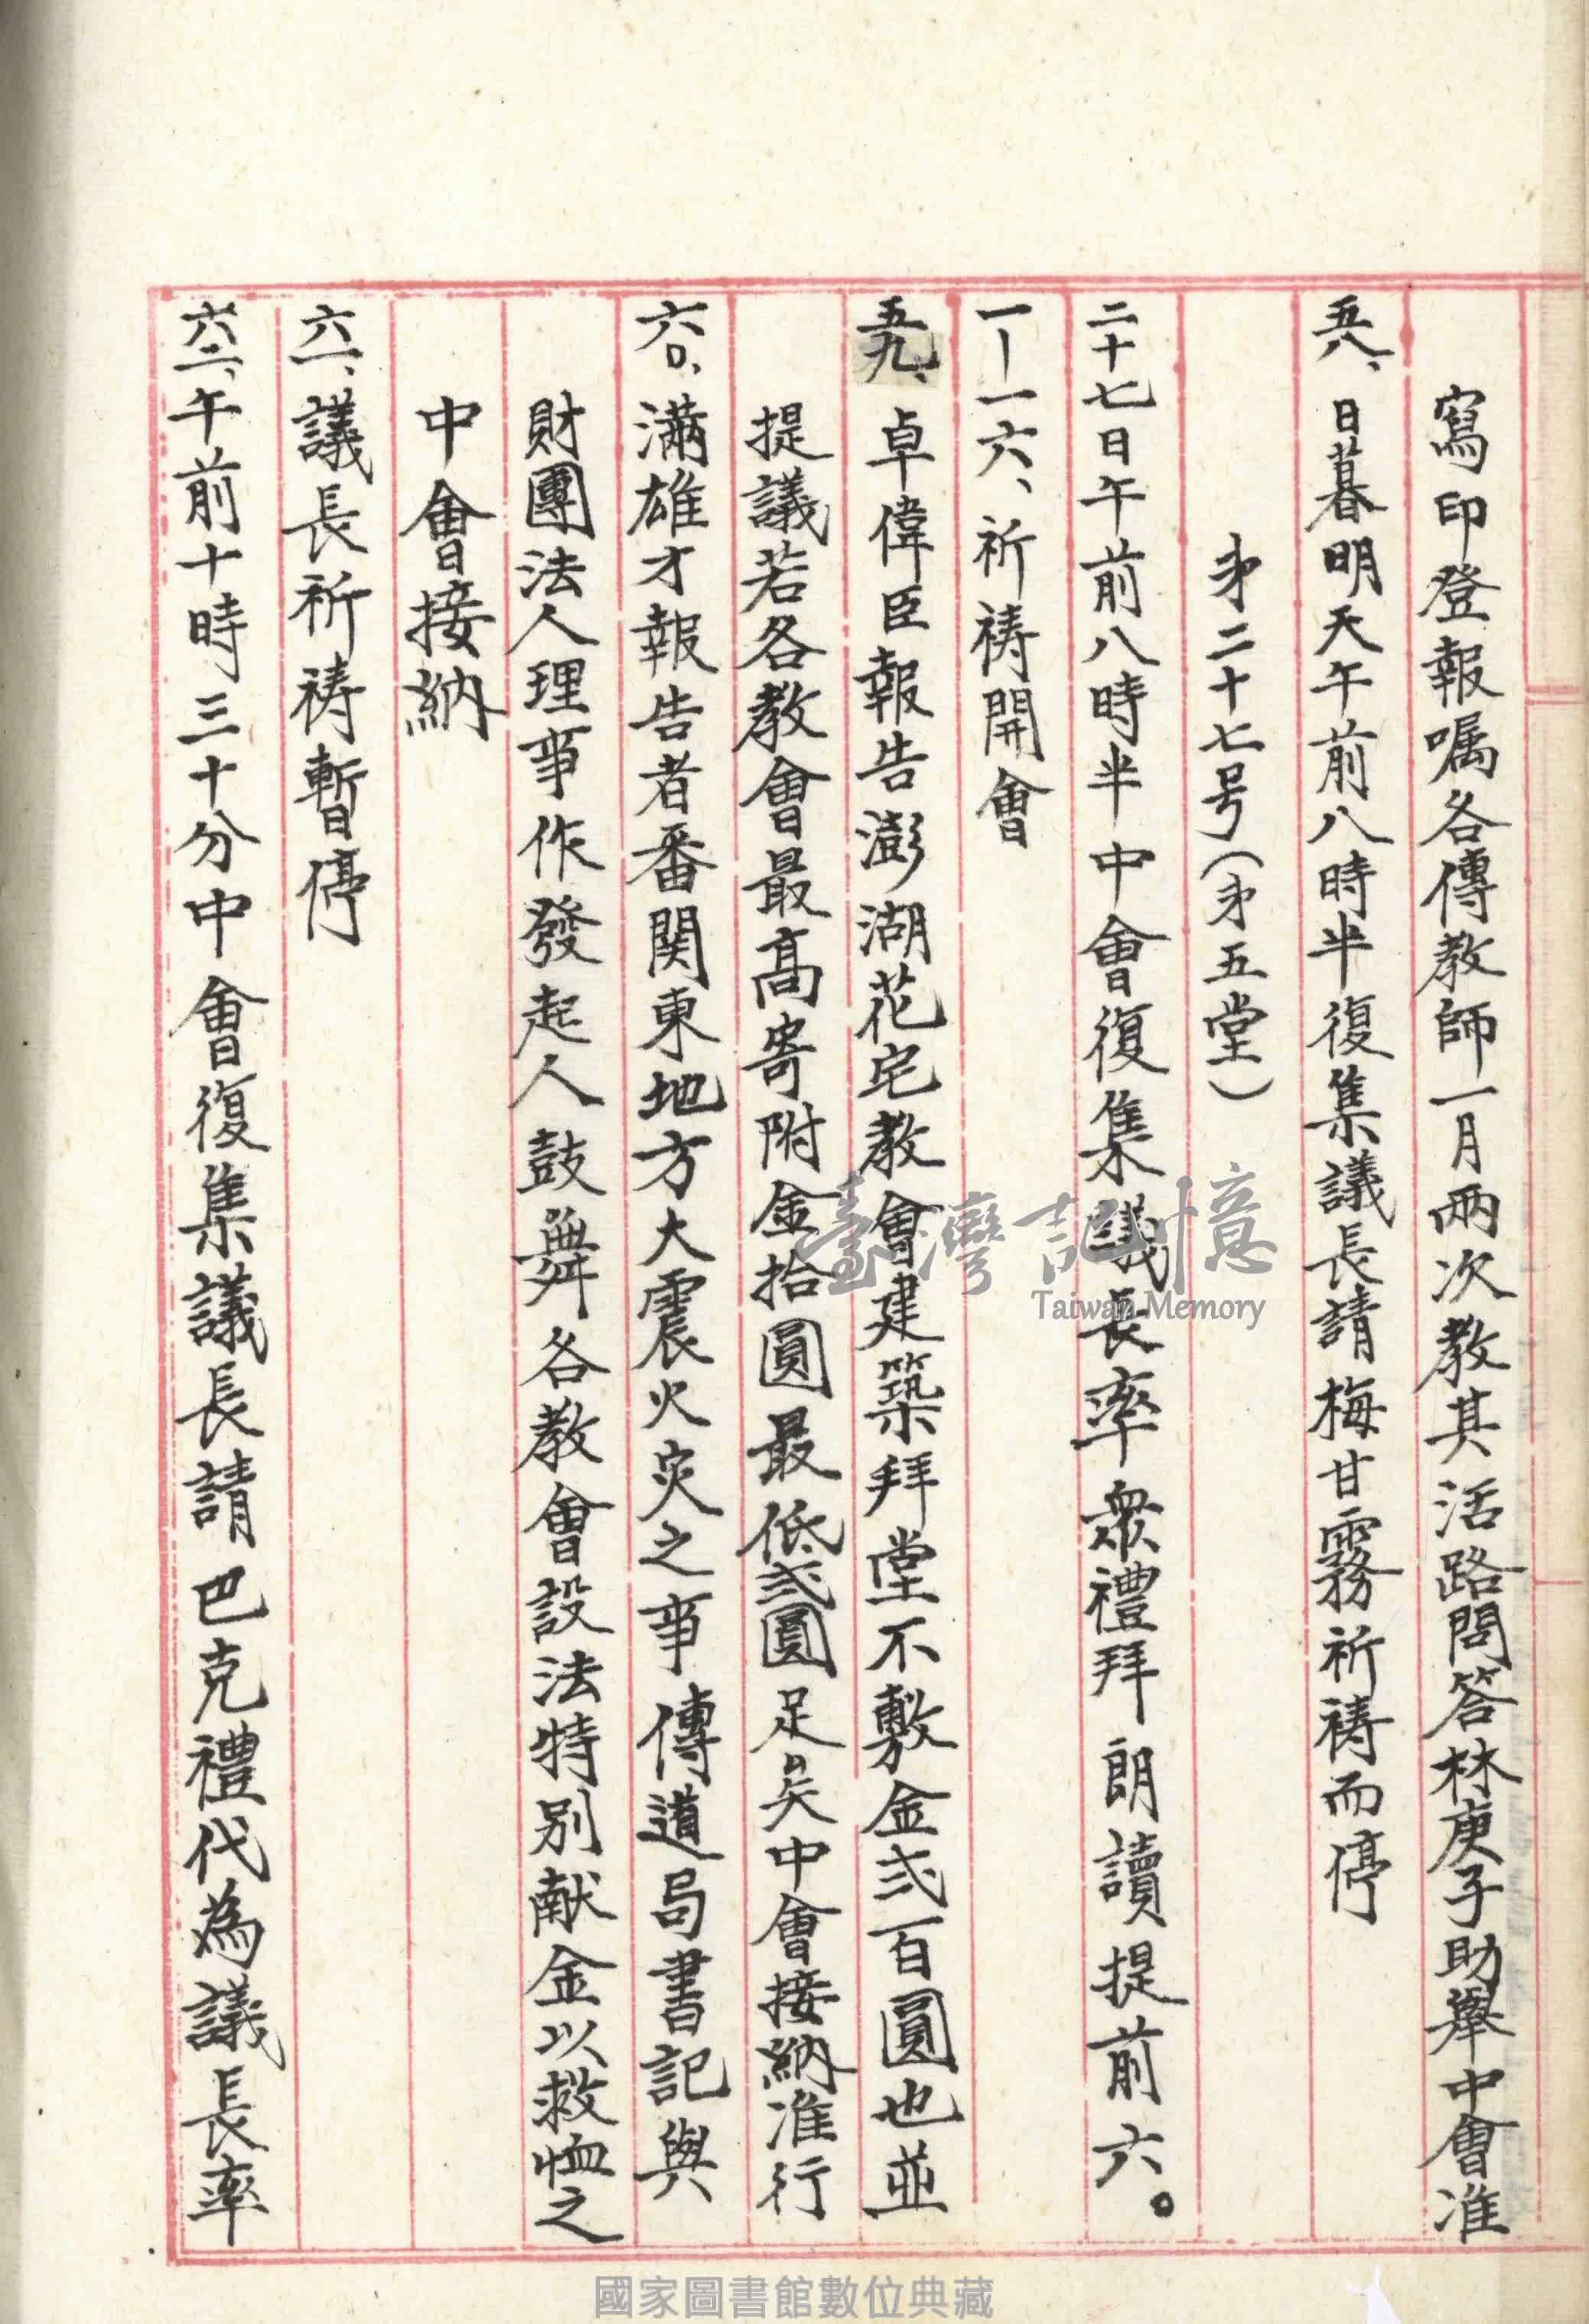 寫印登報嘱各傳教師一月兩次教其活路問答林庚子助舉中會准
五八、日暮明天午前八時半復集議長請梅甘霧祈祷而停
第二十七号(第五堂)
二十七日午前八時半中會復集議長率衆禮拜朗讀提前六。
一—一六、祈祷開會
五九、卓偉臣報告澎湖花宅教會建築拜堂不敷金弍百圓也並
提議若各教會最高寄附金拾圓最低弍圓足矣中會接納准行
六〇、滿雄才報告者番関東地方大震火灾之事傳道局書記與
財團法人理事作發起人鼓舞各教會設法特別献金以救恤之
中會接納
六一、議長祈祷暫停
六二、午前十時三十分中會復集議長請巴克禮代為議長率
臺灣記憶
Taiwan Memory
國家圖書館數位典藏